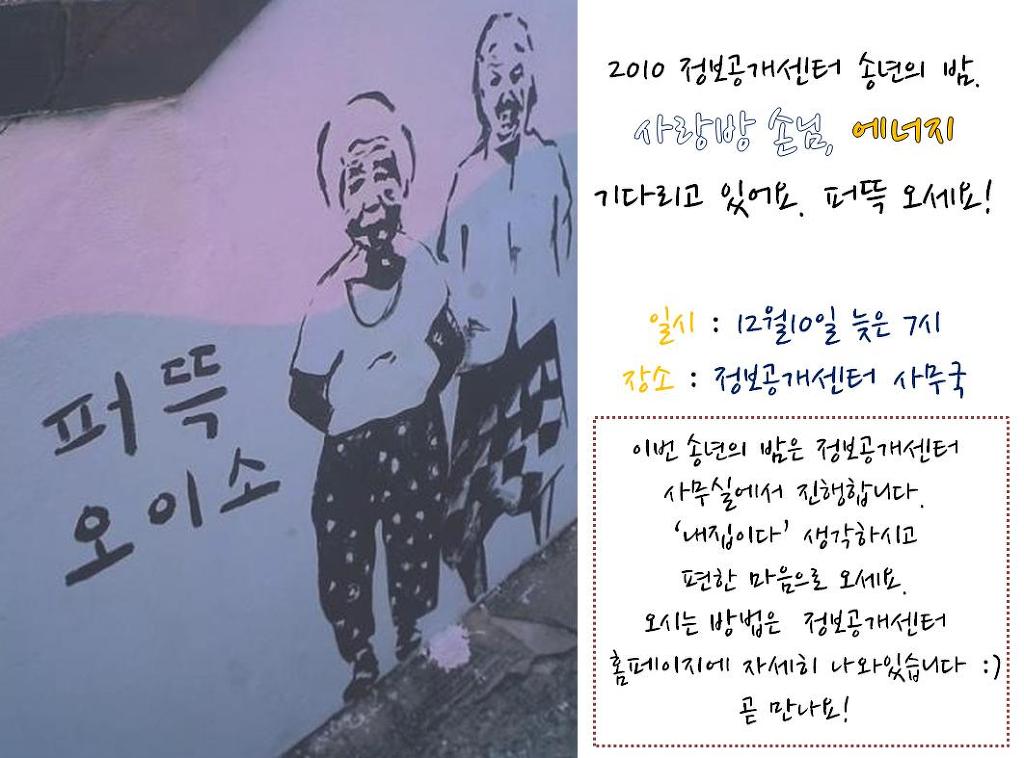 퍼뜩
오이소
2010 정보공개센터 송년의 밤.
사랑방 손님, 에너지
기다리고 있어요. 퍼뜩 오세요!
일시 : 12월10일 늦은 7시
장소 : 정보공개센터 사무국
이번 송년의 밤은 정보공개센터
사무실에서 진행합니다.
'내집이다' 생각하시고
편한 마음으로 오세요.
오시는 방법은 정보공개센터
홈페이지에 자세히 나와있습니다 :)
곧 만나요!